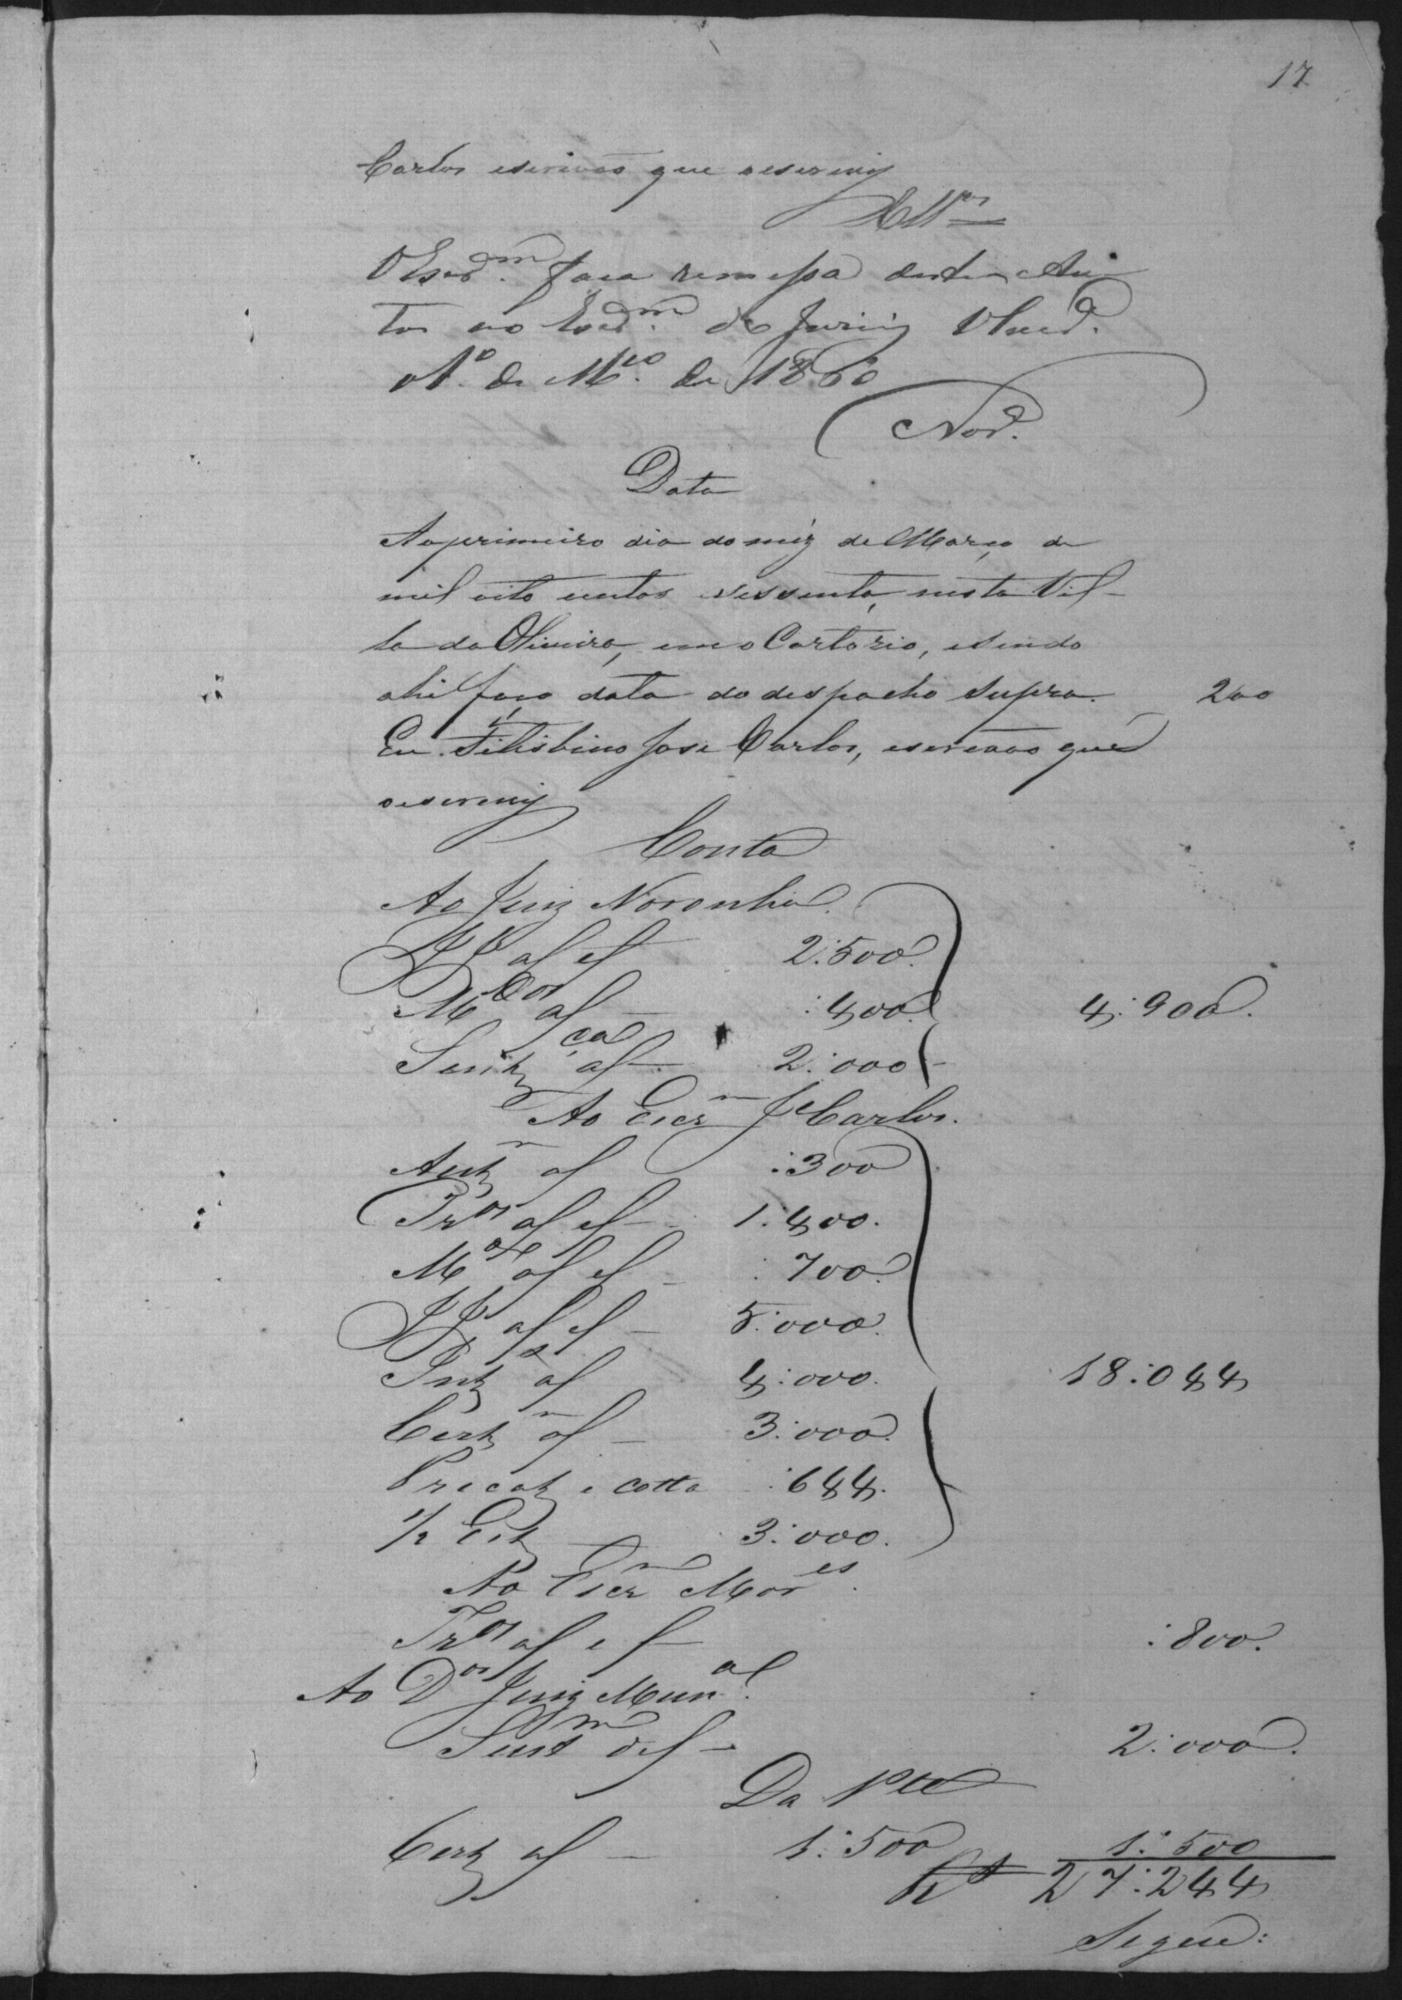 17
Carlos escrivão que escrevy
Cllos
O Escrm. faça remessa destes Au-
tos ao Escrm. de
1º. de Mço. de 1860
Nor.
Data
Ao primeiro dia do mez de Março de
mil oito centos sessenta, nesta Vil-
la da Oliveira, em o Cartorio, e sendo
ahi faço data do despacho supra. 200
Eu Filisbino José Carlos, escrivão que
o escrevy
Conta
Ao Juiz Noronha.
af ef 2:500.
Mdos af :400. 4:900.
Sentça af 2:000
Ao Escrm Je Carlos.
Autm af :300
Tros af ef 1:400.
Mos af ef :700.
af ef 5:000.
af 4:000. 18:044
Certm af 3:000.
Precat e cotta :644.
1/2 Est 3:000.
Ao Escrm Mores.
Tros af e f :800.
Ao Dor Juiz Munal.
Sustm df 2:000.
Da Pte
Cert af 1:500 1:500
Rs 27:244
Segue: